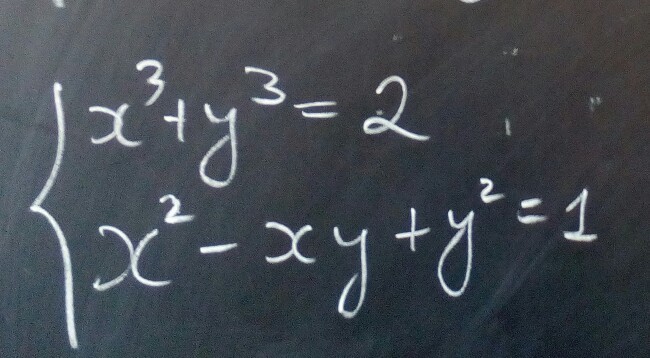 x³+y³=2
x²-xy+y²=1